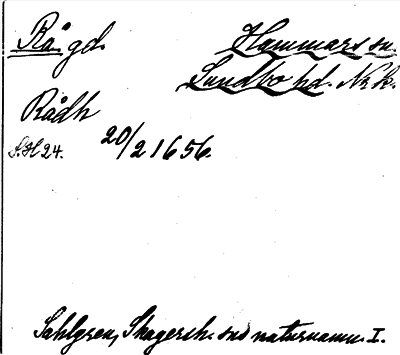 Rå gd.
Hammars sn.
Sundbo hd. Nrk.
Rådh
S.H 24. 20/2 1656.
Sahlgren, Skagersh. sns naturnamn. I.